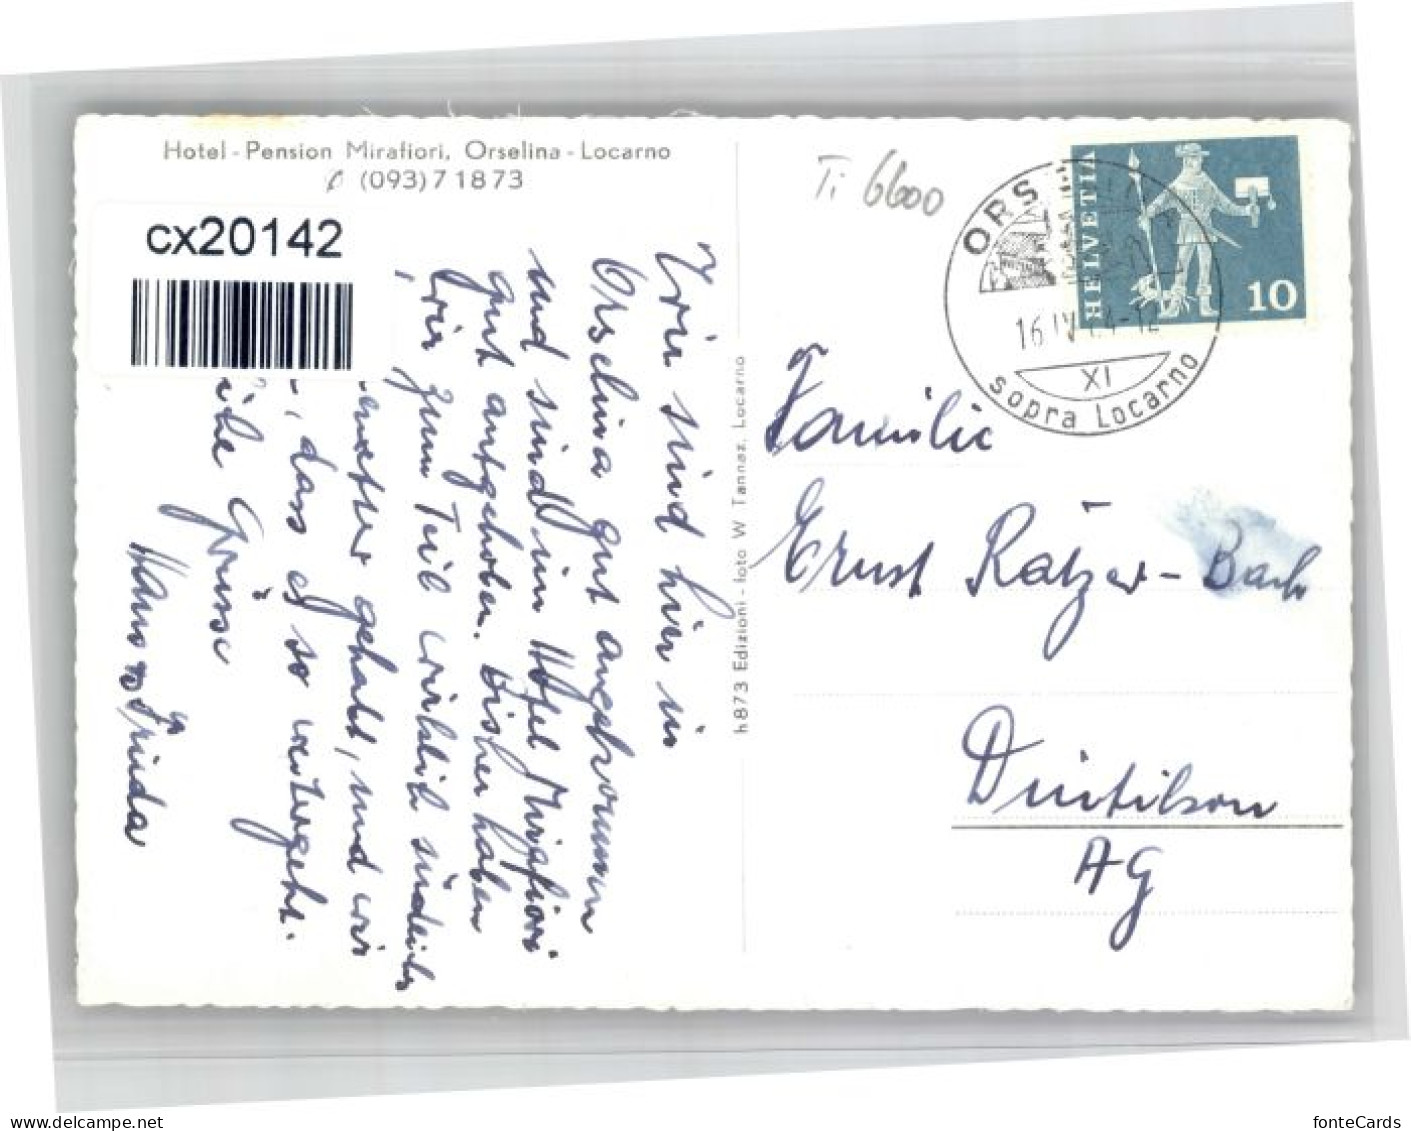 Hotel - Pension Mirafiori, Orselina - Locarno
(093) 7 18 73
cx20142
Wir sind hier in
Orselina gut angekommen
und sind im Hotel Mirafiori
gut aufgehoben. Bisher haben
wir zum Teil wirklich südliches
gehabt, und wir
, dass es so weitergeht.
Grüsse
Hans
h 873 Edizioni - foto W Tannaz, Locarno
Ti 6600
ORS
16 IV 64-12
XI
sopra Locarno
HELVETIA
10
Familie
Ernst Rätzer - Bach
Dintikon
AG
fonteCards